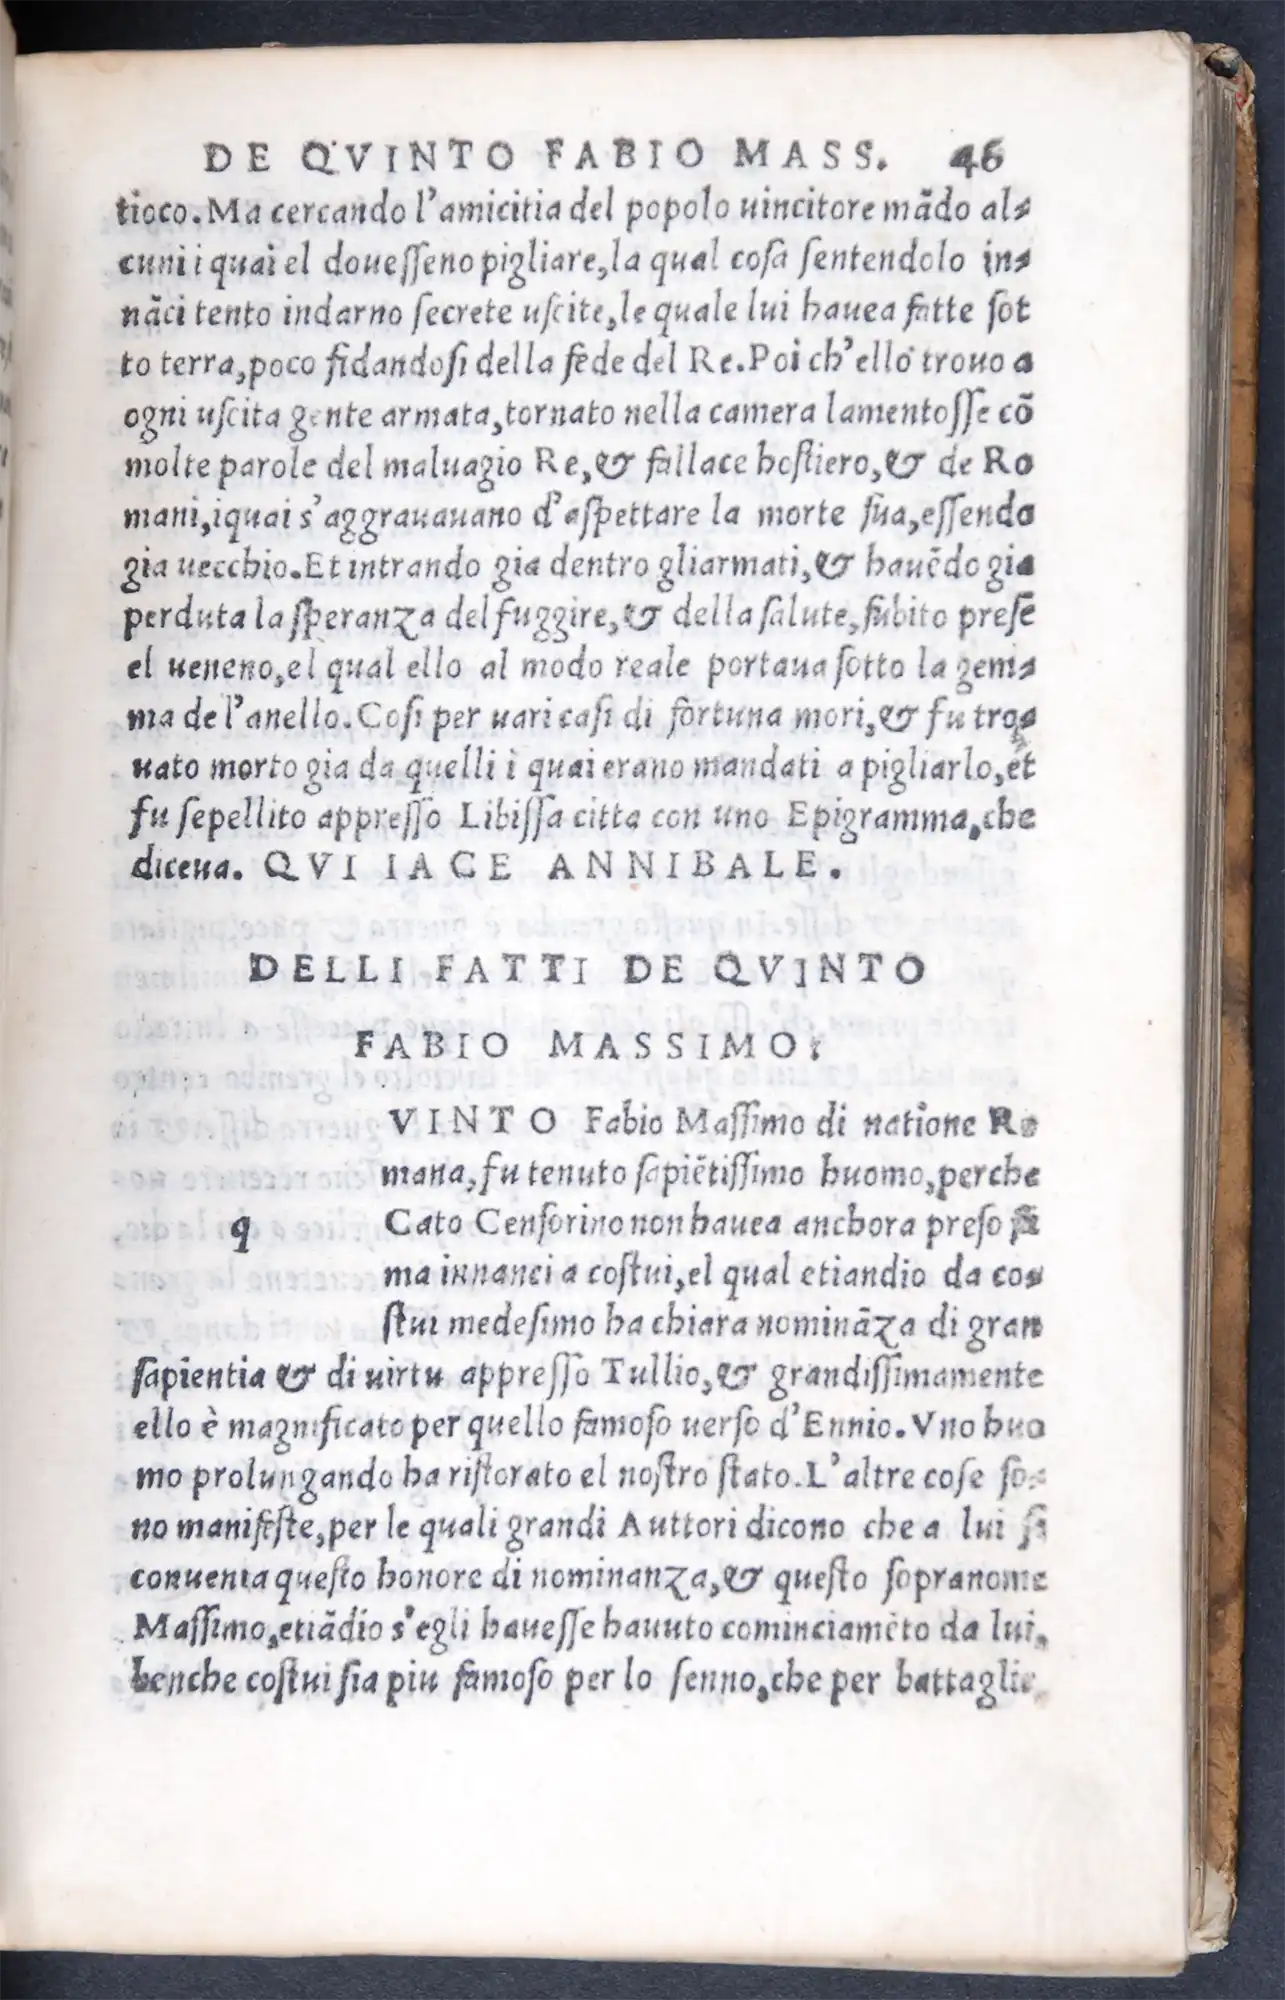 DE QVINTO FABIO MASS. 46
tioco. Ma cercando l'amicitia del popolo uincitore mãdo al-
cuni i quai el douesseno pigliare, la qual cosa sentendolo in-
nãci tento indarno secrete uscite, le quale lui hauea fatte sot
to terra, poco fidandosi della fede del Re. Poi ch'ello trouo a
ogni uscita gente armata, tornato nella camera lamentosse cõ
molte parole del maluagio Re, & fallace hostiero, & de Ro
mani, iquai s'aggrauauano d'aspettare la morte sua, essendo
gia uecchio. Et intrando gia dentro gliarmati, & hauẽdo gia
perduta la speranza del fuggire, & della salute, subito prese
el ueneno, el qual ello al modo reale portaua sotto la gem-
ma de l'anello. Cosi per uari casi di fortuna mori, & fu tro-
uato morto gia da quelli i quai erano mandati a pigliarlo, et
fu sepellito appresso Libissa citta con uno Epigramma, che
diceua. QVI IACE ANNIBALE.
DELLI FATTI DE QVINTO
FABIO MASSIMO.
q VINTO Fabio Massimo di natione Ro
mana, fu tenuto sapiẽtissimo huomo, perche
Cato Censorino non hauea anchora preso fa
ma innanci a costui, el qual etiandio da co-
stui medesimo ha chiara nominãza di gran
sapientia & di uirtu appresso Tullio, & grandissimamente
ello è magnificato per quello famoso uerso d'Ennio. Vno huo
mo prolungando ha ristorato el nostro stato. L'altre cose so-
no manifeste, per le quali grandi Auttori dicono che a lui si
conuenia questo honore di nominanza, & questo sopranome
Massimo, etiãdio s'egli hauesse hauuto cominciamẽto da lui,
benche costui sia piu famoso per lo senno, che per battaglie.